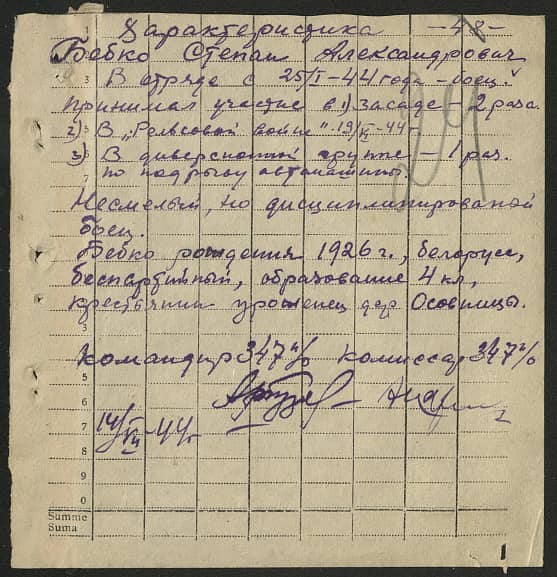 Характеристика -48-
Бебко Степан Александрович
В отряде с 25/I-44 года - боец.
Принимал участие в 1) засаде - 2 раза.
2) В "Рельсовой войне" - 19/VI-44 г
3) В диверсионной группе - 1 раз.
по подрыву автомашины.
Несмелый, но дисциплинированой
боец.
Бебко рождения 1926 г., белорусс,
беспартийный, образование 4 кл,
крестьянин уроженец дер Осовницы.
Командир 347 п/о Комиссар 347 п/о
14/VII-44 г
Summe
Suma